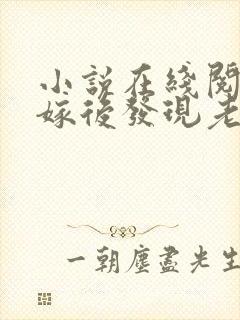 小說在綫閱
嫁後發現老
一朝塵盡光生